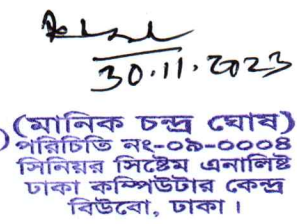 30.11.2023
(মানিক চন্দ্র ঘোষ)
পরিচিতি নং-০৯-০০০৪
সিনিয়র সিষ্টেম এনালিষ্ট
ঢাকা কম্পিউটার কেন্দ্র
বিউবো, ঢাকা।